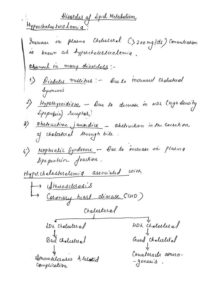 Disorders of Lipid Metabolism
Hypercholesterolemia
Increase in plasma cholesterol (>200 mg/dl) concentration
is known as hypercholesterolemia.
Observed in many disorders:-
1) Diabetes mellitus:- Due to increased cholesterol
synthesis
2) Hypothyroidism:- Due to decrease in HDL (High density
lipoprotein) receptor
3) Obstructive jaundice:- Obstruction in the excretion
of cholesterol through bile.
4) Nephrotic Syndrome:- Due to increase in plasma
lipoprotein fraction.
Hypercholesterolemia associated with
Atherosclerosis
Coronary heart disease (CHD)
Cholesterol
LDL Cholesterol
HDL Cholesterol
Bad Cholesterol
Good Cholesterol
Atherosclerosis & related
complication